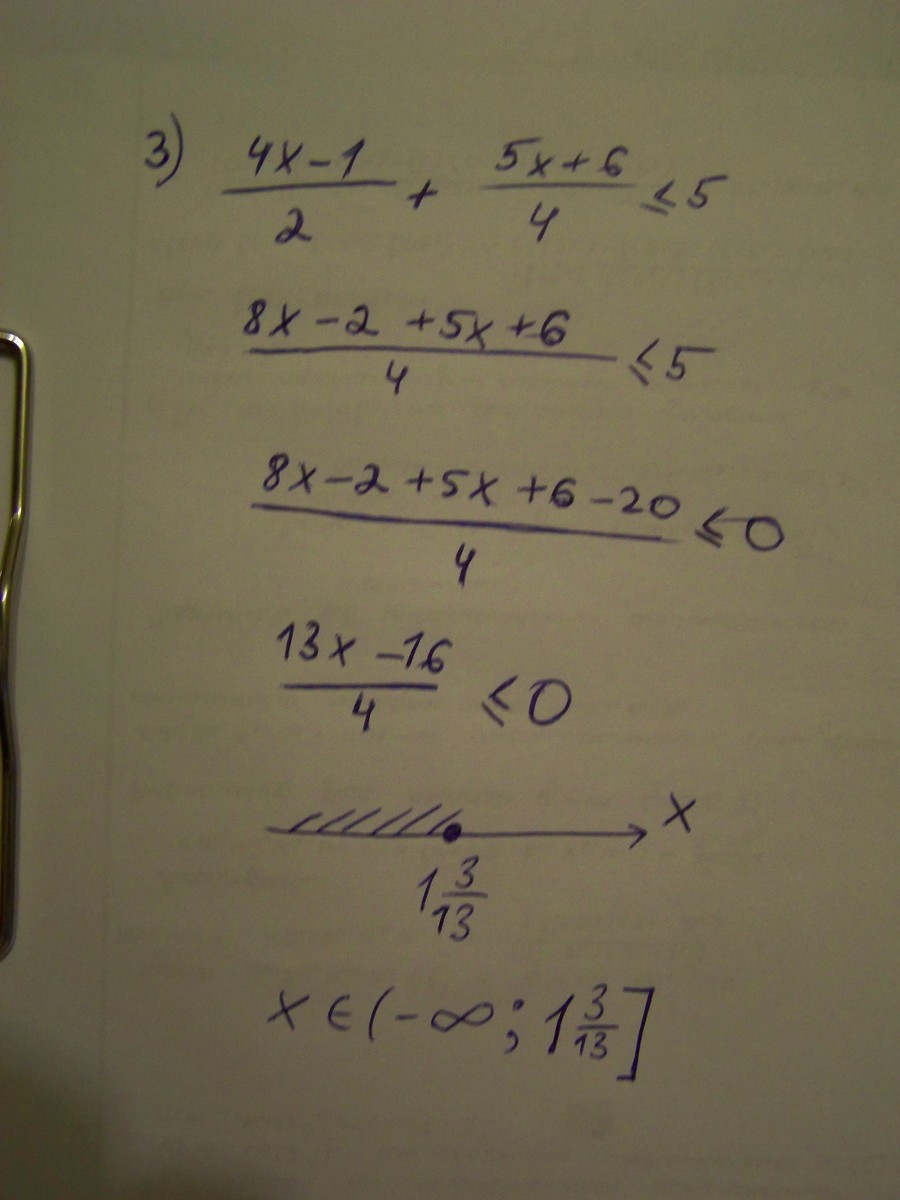 3) (4x-1)/2 + (5x+6)/4 ≤ 5
(8x-2+5x+6)/4 ≤ 5
(8x-2+5x+6-20)/4 ≤ 0
(13x-16)/4 ≤ 0
x
1 3/13
x ∈ (-∞; 1 3/13]